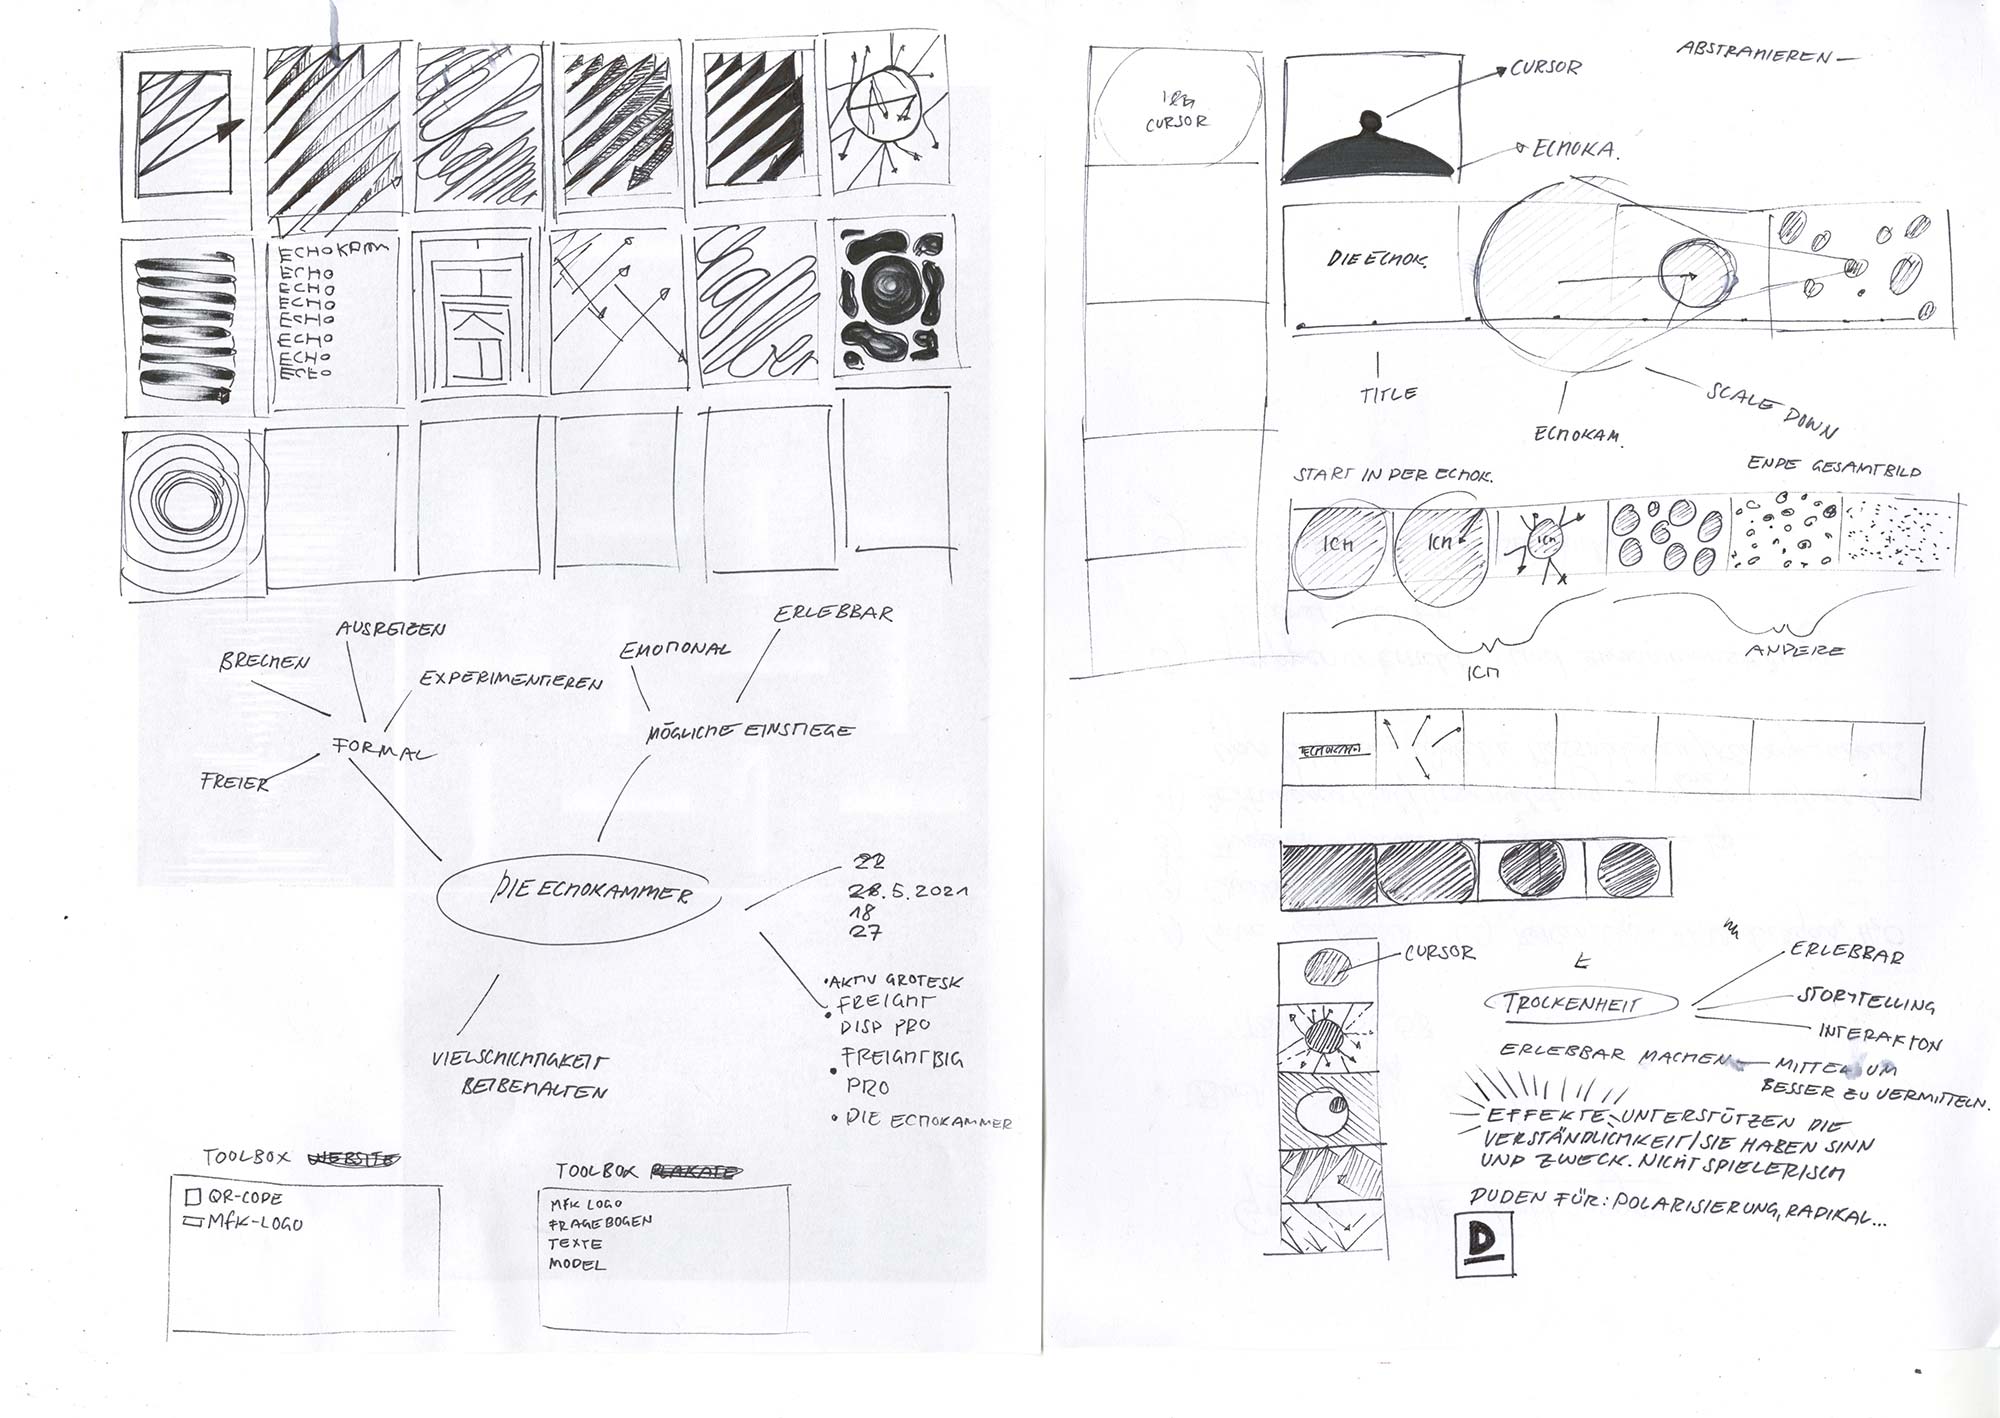 ECHOKAM
ECHO
ECHO
ECHO
ECHO
ECHO
ECHO
ECHO
ECHO
AUSREIZEN
BRECHEN
EXPERIMENTIEREN
FORMAL
FREIER
EMOTIONAL
ERLEBBAR
MÖGLICHE EINSTIEGE
DIE ECHOKAMMER
28.5.2021
18
27
• AKTIV GROTESK
• FREIGHT
DISP PRO
• FREIGHTBIG
PRO
• DIE ECHOKAMMER
VIELSCHICHTIGKEIT
BEIBEHALTEN
TOOLBOX WEBSITE
QR-CODE
MfK-LOGO
TOOLBOX PLAKATE
MfK LOGO
FRAGEBOGEN
TEXTE
MODEL
ICH
CURSOR
CURSOR
ECHOKA.
ABSTRAHIEREN —
DIE ECHOK.
TITLE
ECHOKAM.
SCALE DOWN
START IN DER ECHOK.
ENDE GESAMTBILD
ICH
ICH
ICH
ICH
ANDERE
CURSOR
TROCKENHEIT
ERLEBBAR
STORYTELLING
INTERAKTION
ERLEBBAR MACHEN — MITTEL UM
BESSER ZU VERMITTELN.
EFFEKTE UNTERSTÜTZEN DIE
VERSTÄNDLICHKEIT/SIE HABEN SINN
UND ZWECK. NICHT SPIELERISCH
DUDEN FÜR: POLARISIERUNG, RADIKAL...
D